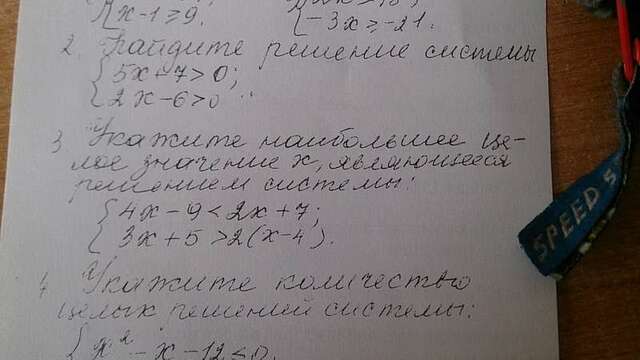 x-1≥9.
-3x≥-21.
2. Найдите решение системы
5x+7>0;
2x-6>0
3 Укажите наибольшее це-
лое значение x, являющееся
решением системы:
4x-9<2x+7;
3x+5>2(x-4).
4 Укажите количество
целых решений системы:
x²-x-12≤0.
SPEED